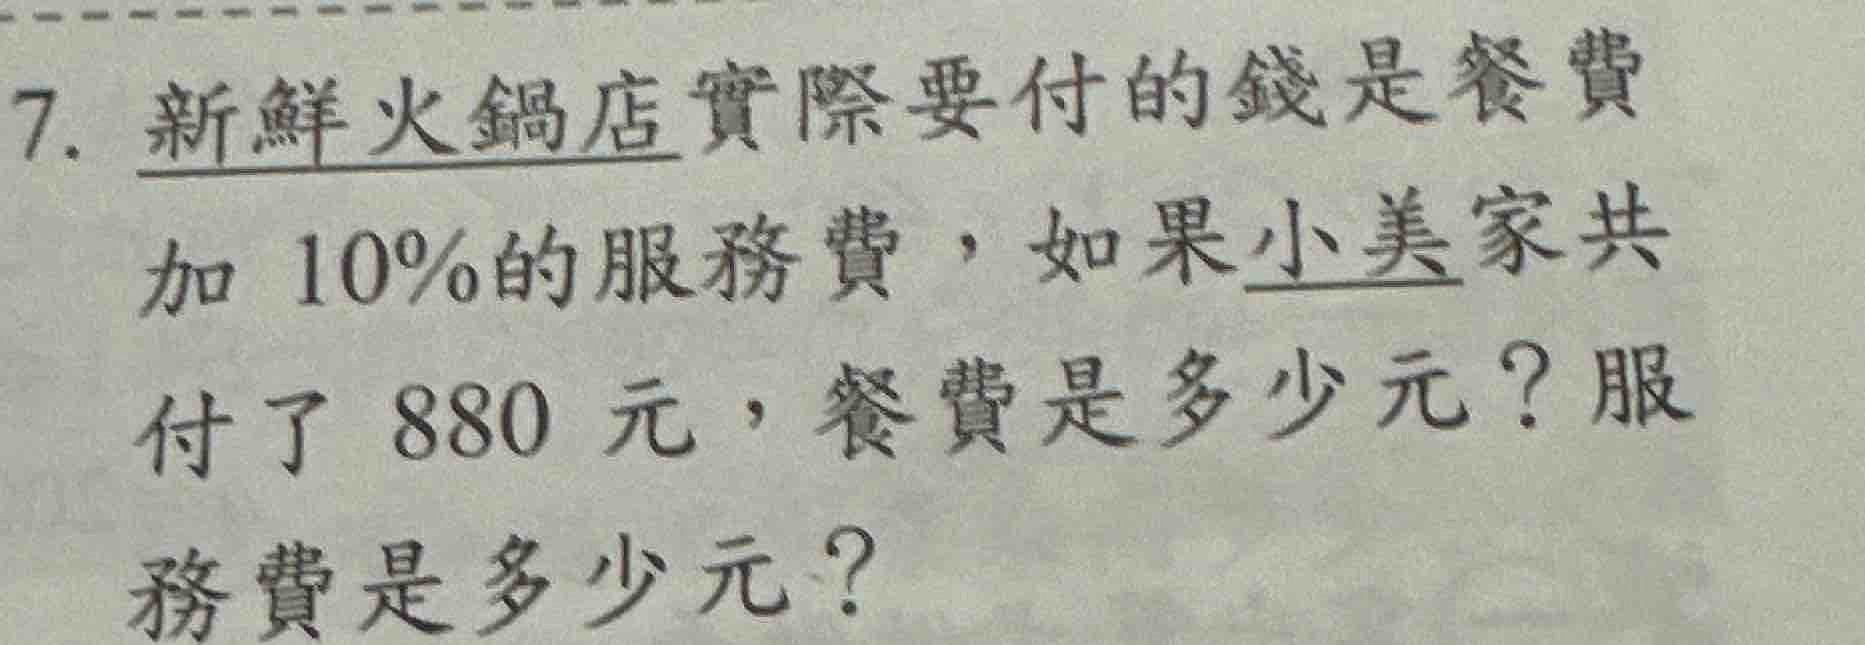 7. 新鮮火鍋店實際要付的錢是餐費
加 10%的服務費，如果小美家共
付了 880 元，餐費是多少元？服
務費是多少元？